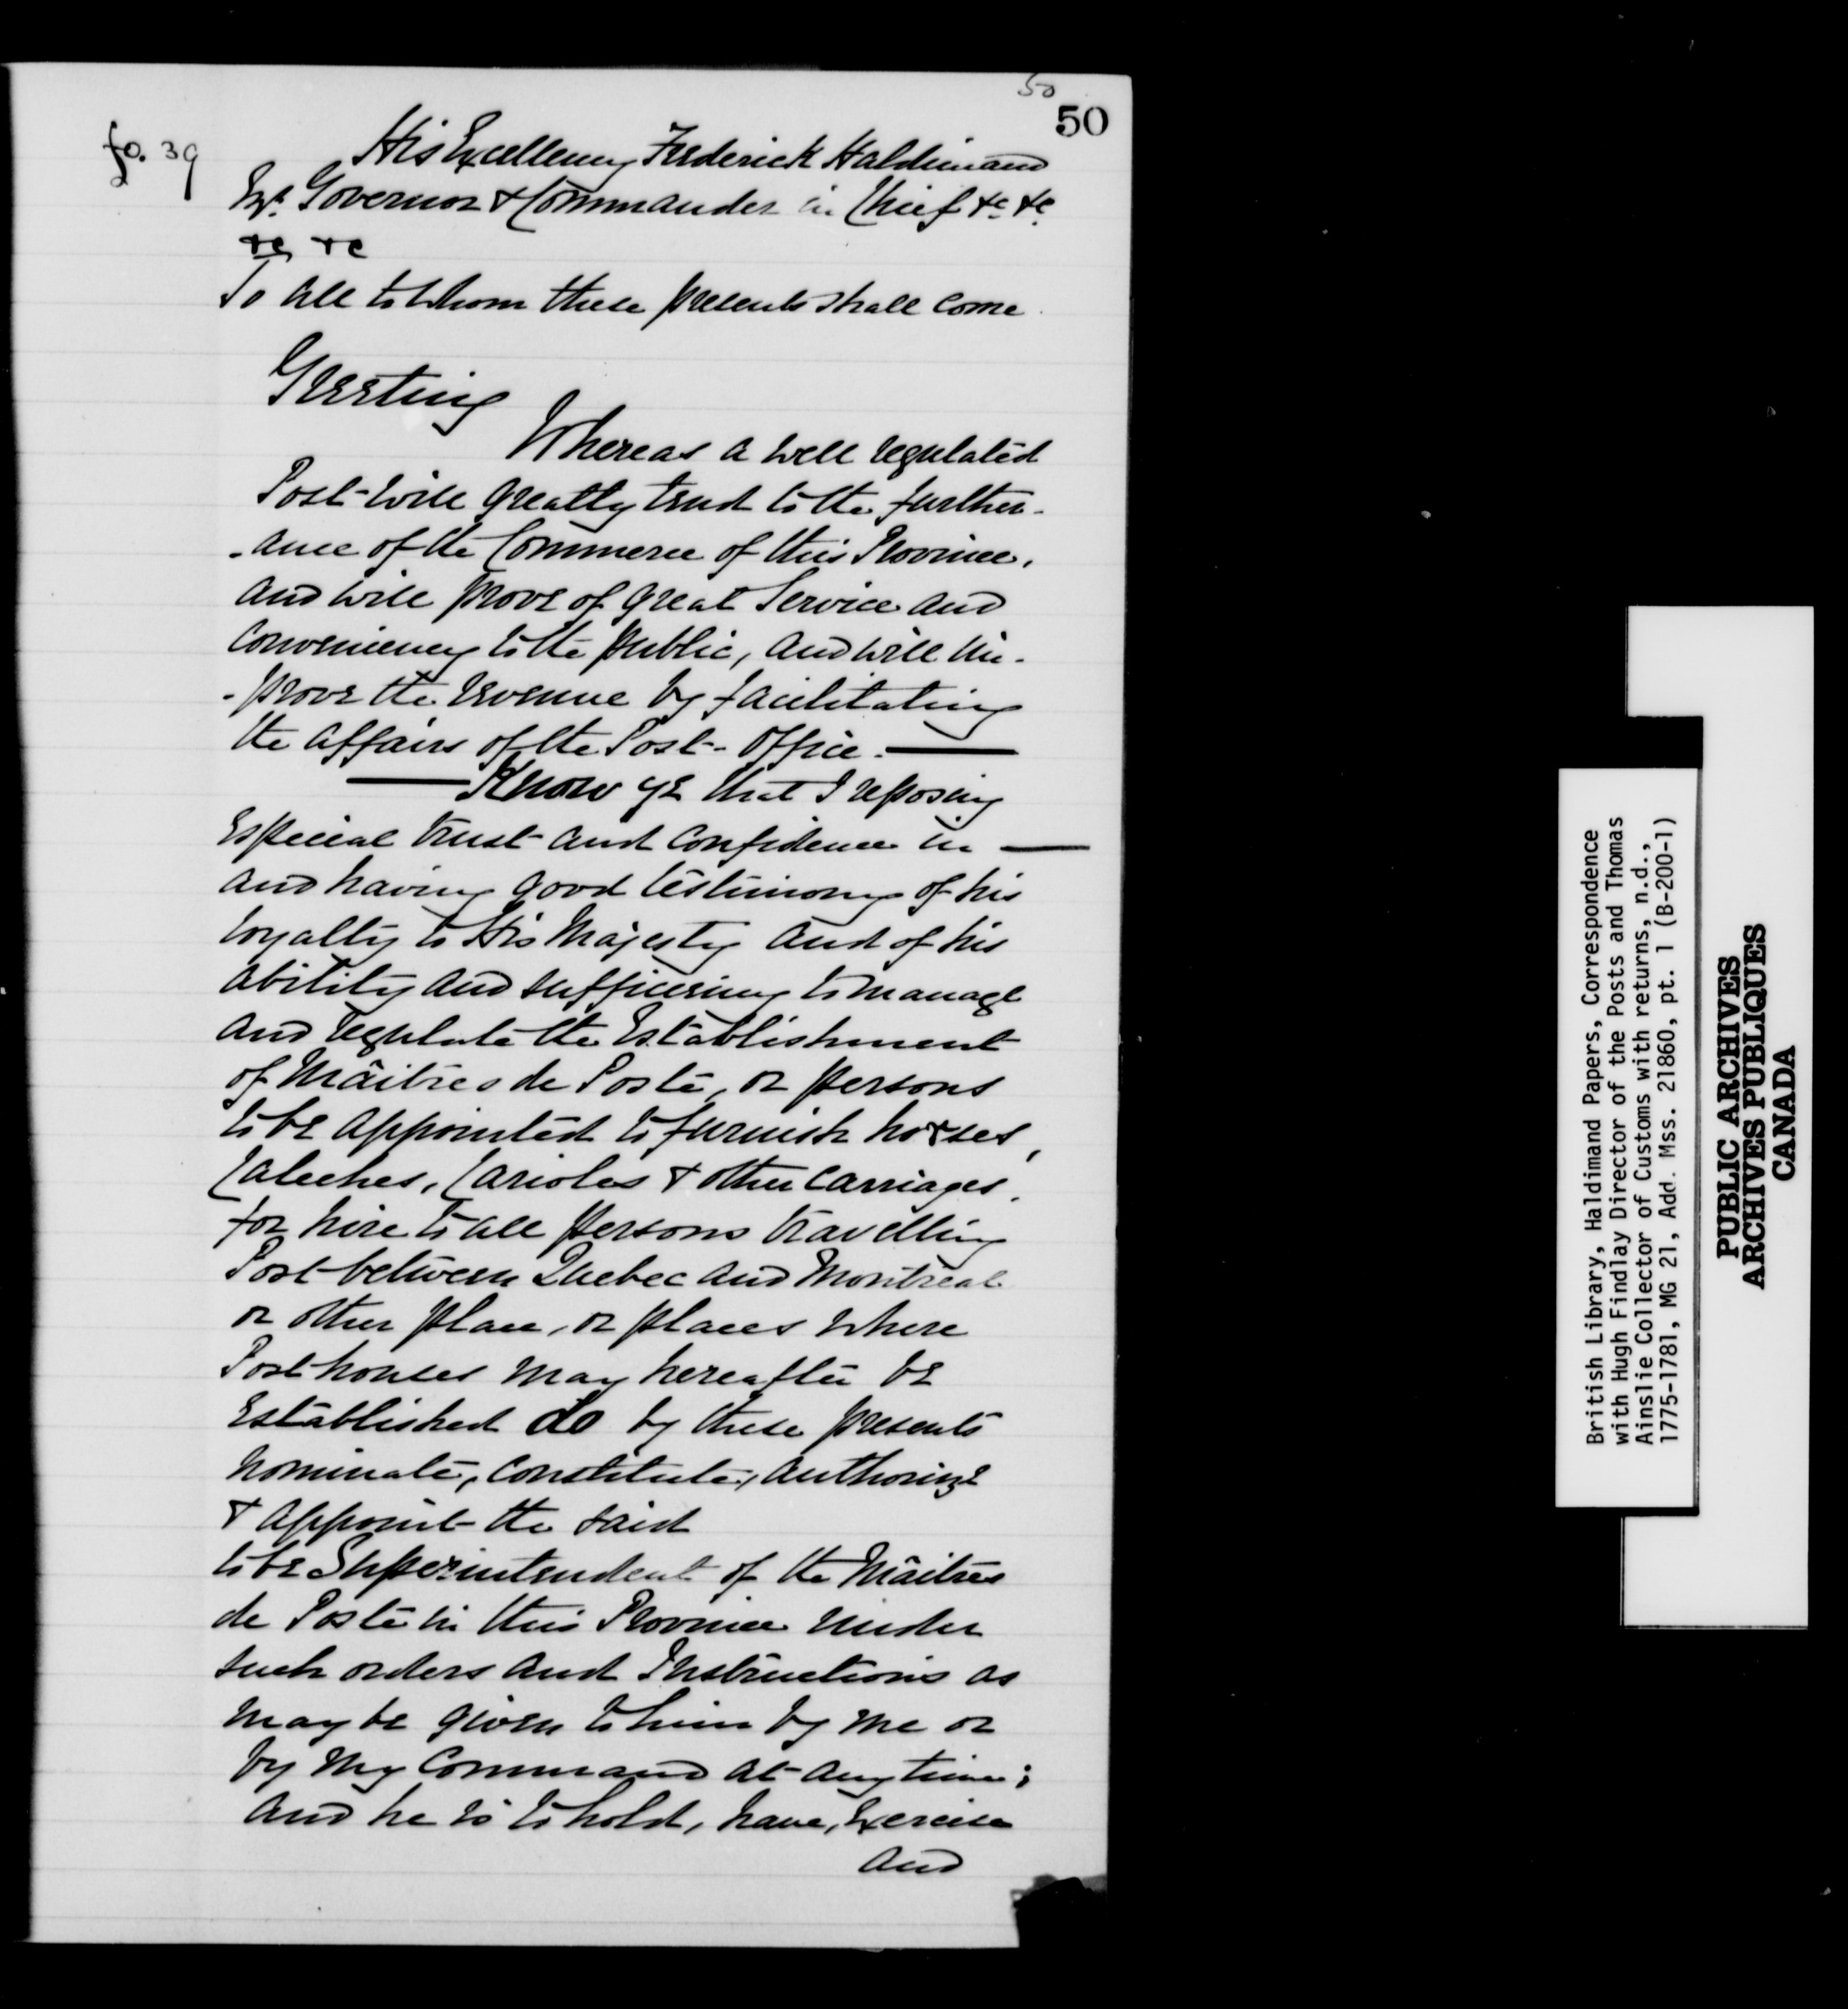 50
50
fo. 39
His Excellency Frederick Haldimand
Esqr. Governor & Commander in Chief &c &c
&c &c
To all to Whom these presents shall come
Greeting
Whereas a well regulated
Post will greatly tend to the further-
-ance of the Commerce of this Province,
and will prove of great Service and
Conveniency to the public, and will im-
-prove the revenue by facilitating
the affairs of the Post-Office. —
— Know ye that I reposing
Especial trust and Confidence in —
and having good testimony of his
loyalty to His Majesty and of his
ability and sufficiency to manage
and regulate the Establishment
of Maîtres de Poste, or persons
to be appointed to furnish horses,
Caleches, Carioles & other Carriages,
for hire to all persons travelling
Post between Quebec and Montreal
or other place, or places where
Post houses may hereafter be
Established do by these presents
nominate, Constitute, authorize
& appoint the said
to be Superintendent of the Maîtres
de Poste in this Province under
such orders and Instructions as
may be given to him by me or
by my Command at any time;
and he is to hold, have, Exercise
and
British Library, Haldimand Papers, Correspondence
with Hugh Findlay Director of the Posts and Thomas
Ainslie Collector of Customs with returns, n.d.,
1775-1781, MG 21, Add. Mss. 21860, pt. 1 (B-200-1)
PUBLIC ARCHIVES
ARCHIVES PUBLIQUES
CANADA